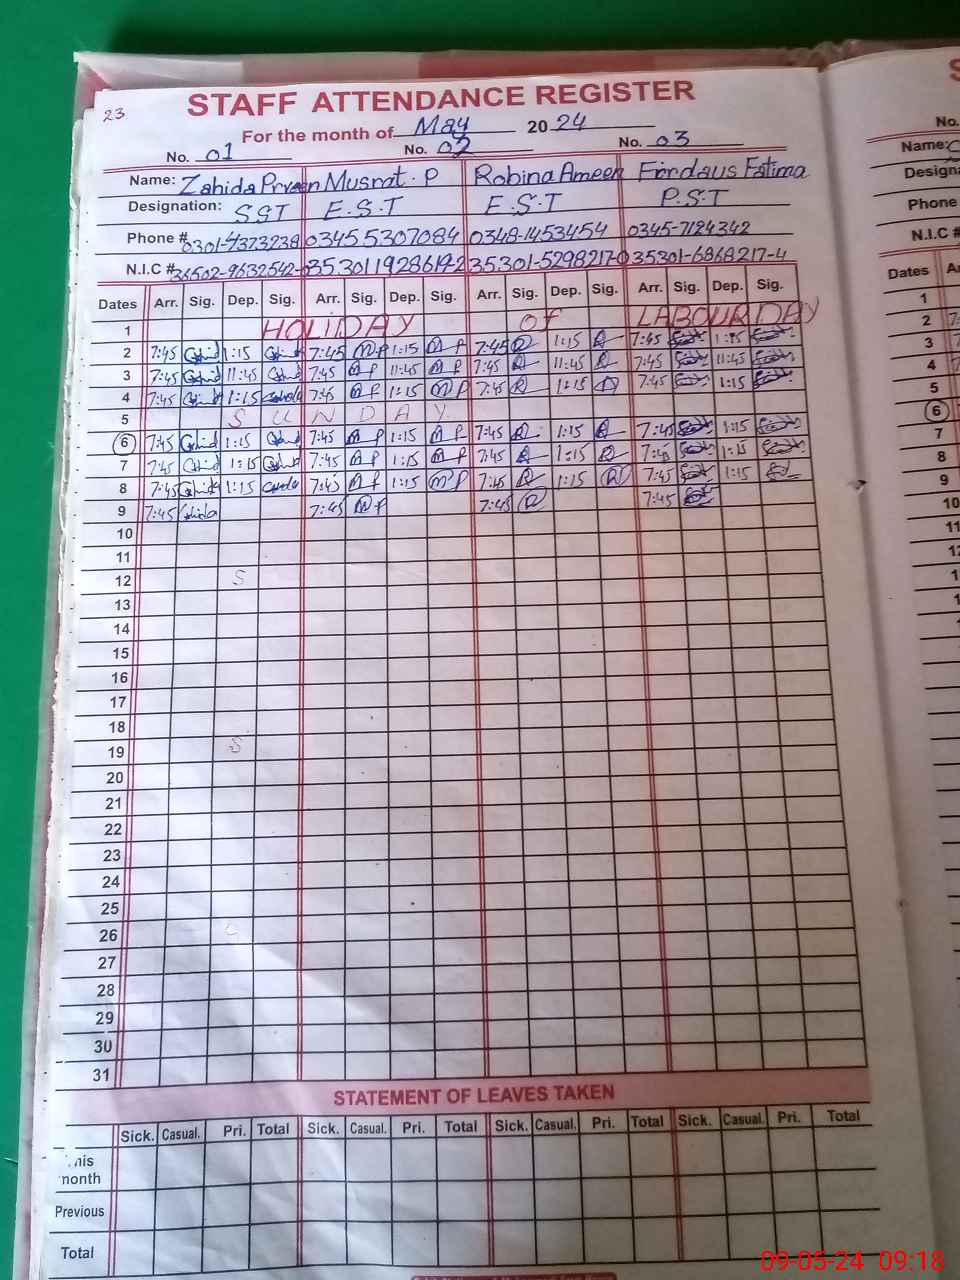 23
STAFF ATTENDANCE REGISTER
For the month of May 2024
No. 01 No. 02 No. 03
Name: Zahida Prveen Musrat. P Robina Ameen Firdaus Fatima
Designation: SST E.S.T E.S.T P.S.T
Phone # 0301-4373238 0345 5307084 0348-1453454 0345-7124342
N.I.C # 35301-5298217-0 35301-6868217-4
Dates Arr. Sig. Dep. Sig. Arr. Sig. Dep. Sig. Arr. Sig. Dep. Sig. Arr. Sig. Dep. Sig.
1 HOLIDAY OF LABOUR DAY
2 7:45 1:15 7:45 MP 1:15 MP 7:45 R 1:15 R 7:45 1:15
3 7:45 11:45 7:45 MP 11:45 MP 7:45 R 11:45 R 7:45 11:45
4 7:45 1:15 7:45 MP 1:15 MP 7:45 R 1:15 R 7:45 1:15
5 SUNDAY
6 7:45 1:15 7:45 MP 1:15 MP 7:45 R 1:15 R 7:45 1:15
7 7:45 1:15 7:45 MP 1:15 MP 7:45 R 1:15 R 7:45 1:15
8 7:45 1:15 7:45 MP 1:15 MP 7:45 R 1:15 R 7:45 1:15
9 7:45 7:45 MP 7:45 R 7:45
10
11
12 S
13
14
15
16
17
18
19 S
20
21
22
23
24
25
26
27
28
29
30
31
STATEMENT OF LEAVES TAKEN
Sick. Casual. Pri. Total Sick. Casual. Pri. Total Sick. Casual. Pri. Total Sick. Casual. Pri. Total
month
Previous
Total
No.
Name:
Phone
N.I.C #
Dates
1
2
3
4
5
6
7
8
9
10
11
12
09-05-24 09:18